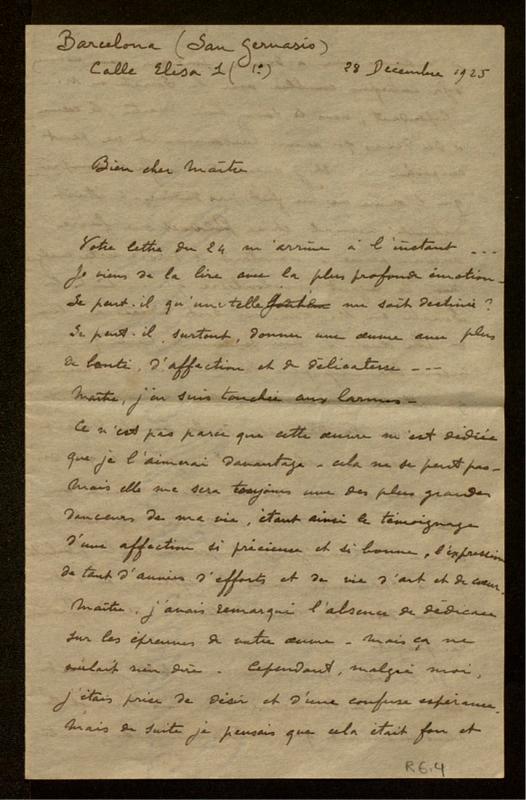 Barcelona (San Gervasio)
Calle Elisa 1 (1º) 28 Décembre 1925
Bien cher Maître
Votre lettre du 24 m'arrive à l'instant ...
Je viens de la lire avec la plus profonde émotion -
Se peut-il, qu'une telle me soit destinée ?
Se peut-il, surtout, donner une œuvre avec plus
de bonté, d'affection et de délicatesse ---
Maître, j'en suis touchée aux larmes -
Ce n'est pas parce que cette œuvre m'est dédiée
que je l'aimerai davantage - cela ne se peut pas -
Mais elle me sera toujours une des plus grandes
douceurs de ma vie, étant ainsi le témoignage
d'une affection si précieuse et si bonne, l'expression
de tant d'années d'efforts et de vie d'art et de cœur.
Maître, j'avais remarqué l'absence de dédicace
sur les épreuves de votre œuvre - mais ça ne
voulait rien dire - Cependant, malgré moi,
j'étais prise de désir et d'une confuse espérance.
Mais de suite je pensais que cela était fou et
R.6.4